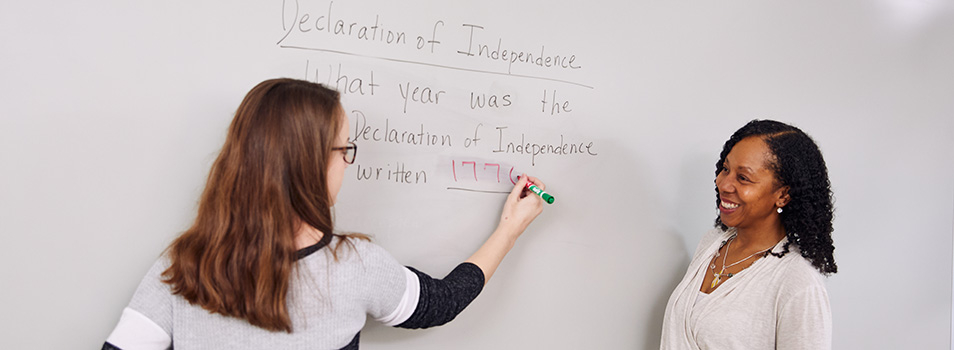 Declaration of Independence
What year was the
Declaration of Independence
written 1776